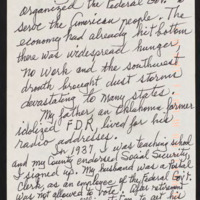 organized the Federal Gov't. to
serve the American people. The
economy had already hit bottom
there was widespread hunger
no work and the southwest
drouth brought dust storms
devastating to many states.
My father, an Oklahoma farmer
idolized F.D.R., lived for his
radio addresses.
In 1937, I was teaching school
and my County endorsed Social Security,
I signed up. My husband was a Postal
Clerk, as an employee of the Federal Gov't.
was not allowed to vote. After retirement
to get his